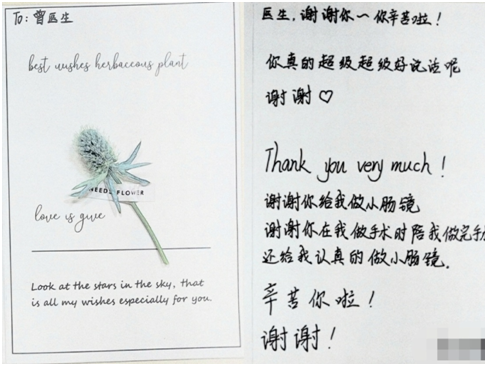 To: 曾医生
best wishes herbaceous plant
NEEDS FLOWER
love is give
Look at the stars in the sky, that
is all my wishes especially for you.
医生,谢谢你~你辛苦啦!
你真的超级超级好说话呢
谢谢♡
Thank you very much!
谢谢你给我做小肠镜
谢谢你在我做手术时陪我做完手术
还给我认真的做小肠镜.
辛苦你啦!
谢谢!